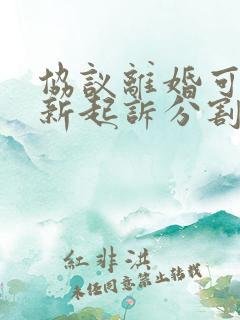 協議離婚可
新起訴分割
紅非洪
未經同意禁止轉載